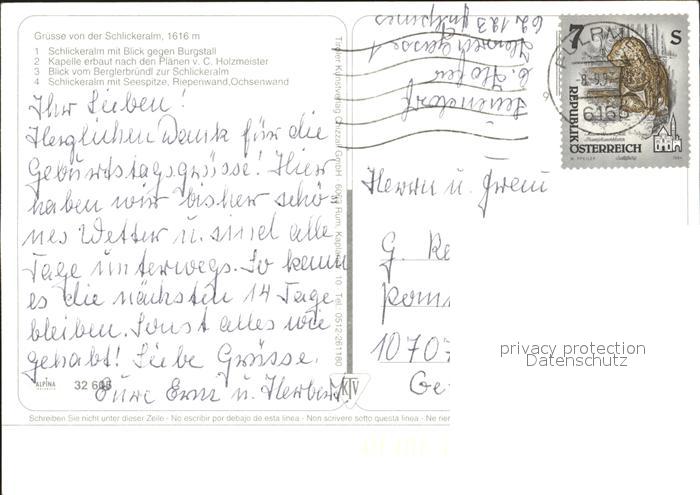 Grüsse von der Schlickeralm, 1616 m
1 Schlickeralm mit Blick gegen Burgstall
2 Kapelle erbaut nach den Plänen v. C. Holzmeister
3 Blick vom Berglerbründl zur Schlickeralm
4 Schlickeralm mit Seespitze, Riepenwand,Ochsenwand
Ihr Lieben!
Herzlichen Dank für die
Geburtstagsgrüsse! Hier
haben wir bisher schö-
nes Wetter u. sind alle
Tage unterwegs. So kann
es die nächsten 14 Tage
bleiben. Sonst alles wie
gehabt! Liebe Grüsse.
Eure Erna u. Herbert
ALPINA
32 605
KTV
Schreiben Sie nicht unter dieser Zeile - No escribir por debajo de esta linea - Non scrivere sotto questa linea - Ne rien
Tiroler Kunstverlag Chizzali GmbH, 6063 Rum, 10 Tel. 0512/261180
7 S
REPUBLIK
ÖSTERREICH
6166
Herrn u. Frau
G.
1070
privacy protection
Datenschutz